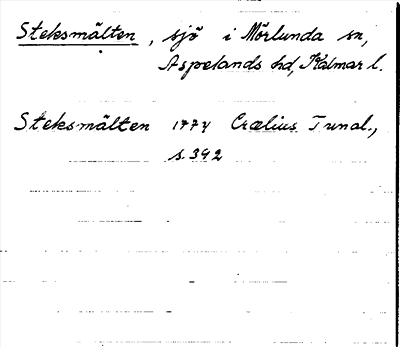 Steksmälten, sjö i Mörlunda sn,
Aspelands hd, Kalmar l.
Steksmälten 1774 Crælius Tunal.,
s. 392